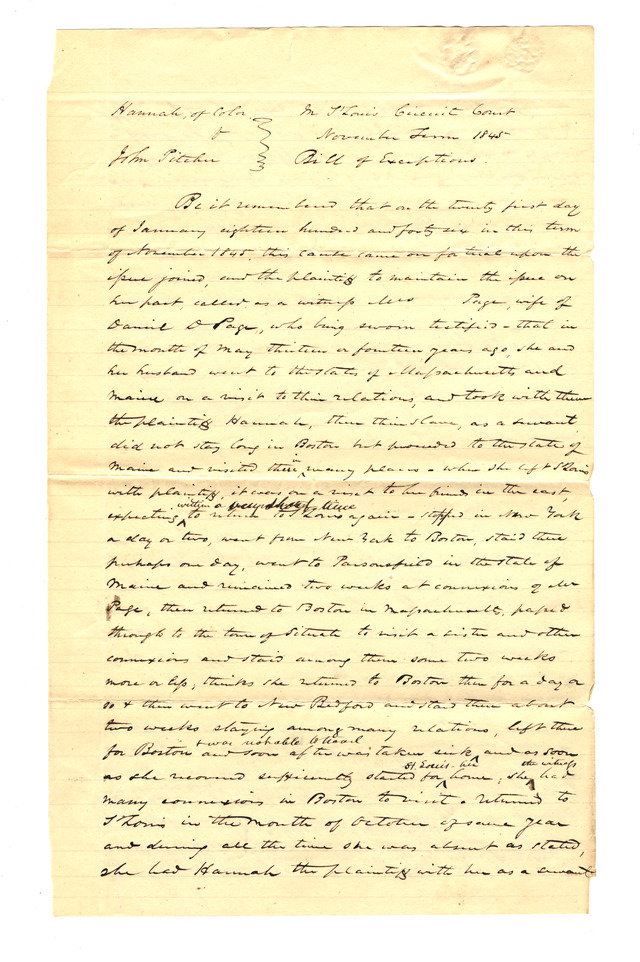 Hannah, of Color, In St Louis Circuit Court
v November Term 1845
John Pitcher Bill of Exceptions.
Be it remembered that on the twenty first day
of January eighteen hundred and forty six in this term
of November 1845, this cause came on for trial upon the
issue joined, and the plaintiff to maintain the issue on
her part, called as a witness Mrs Page, wife of
Daniel D Page, who being sworn testified - that in
the month of May thirteen or fourteen years ago, she and
her husband went to the states of Massachusetts and
Maine on a visit to their relations, and took with them
the plaintiff Hannah, then their slave, as a servant,
did not stay long in Boston but proceeded to the state of
Maine and visited there in many places - when she left St Louis
with plaintiff, it was on a visit to her friends in the east,
expecting within a very short time to return to St Louis again - stopped in New York
a day or two, went from New York to Boston, staid there
perhaps one day, went to Parsonsfield in the state of
Maine and remained two weeks at connexions of Mr
Page, then returned to Boston in Massachusetts, passed
through to the town of Situate to visit a sister and other
connexions and staid among them some two weeks
more or less, thinks she returned to Boston then for a day or
so & then went to New Bedford and staid there about
two weeks staying among many relations, left there
for Boston and soon after was taken sick & was not able to travel and as soon
as she recovered sufficiently started for St Louis - her home; she the witness had
many connexions in Boston to visit - returned to
St Louis in the month of October of same year
and during all the time she was absent as stated,
she had Hannah the plaintiff with her as a servant